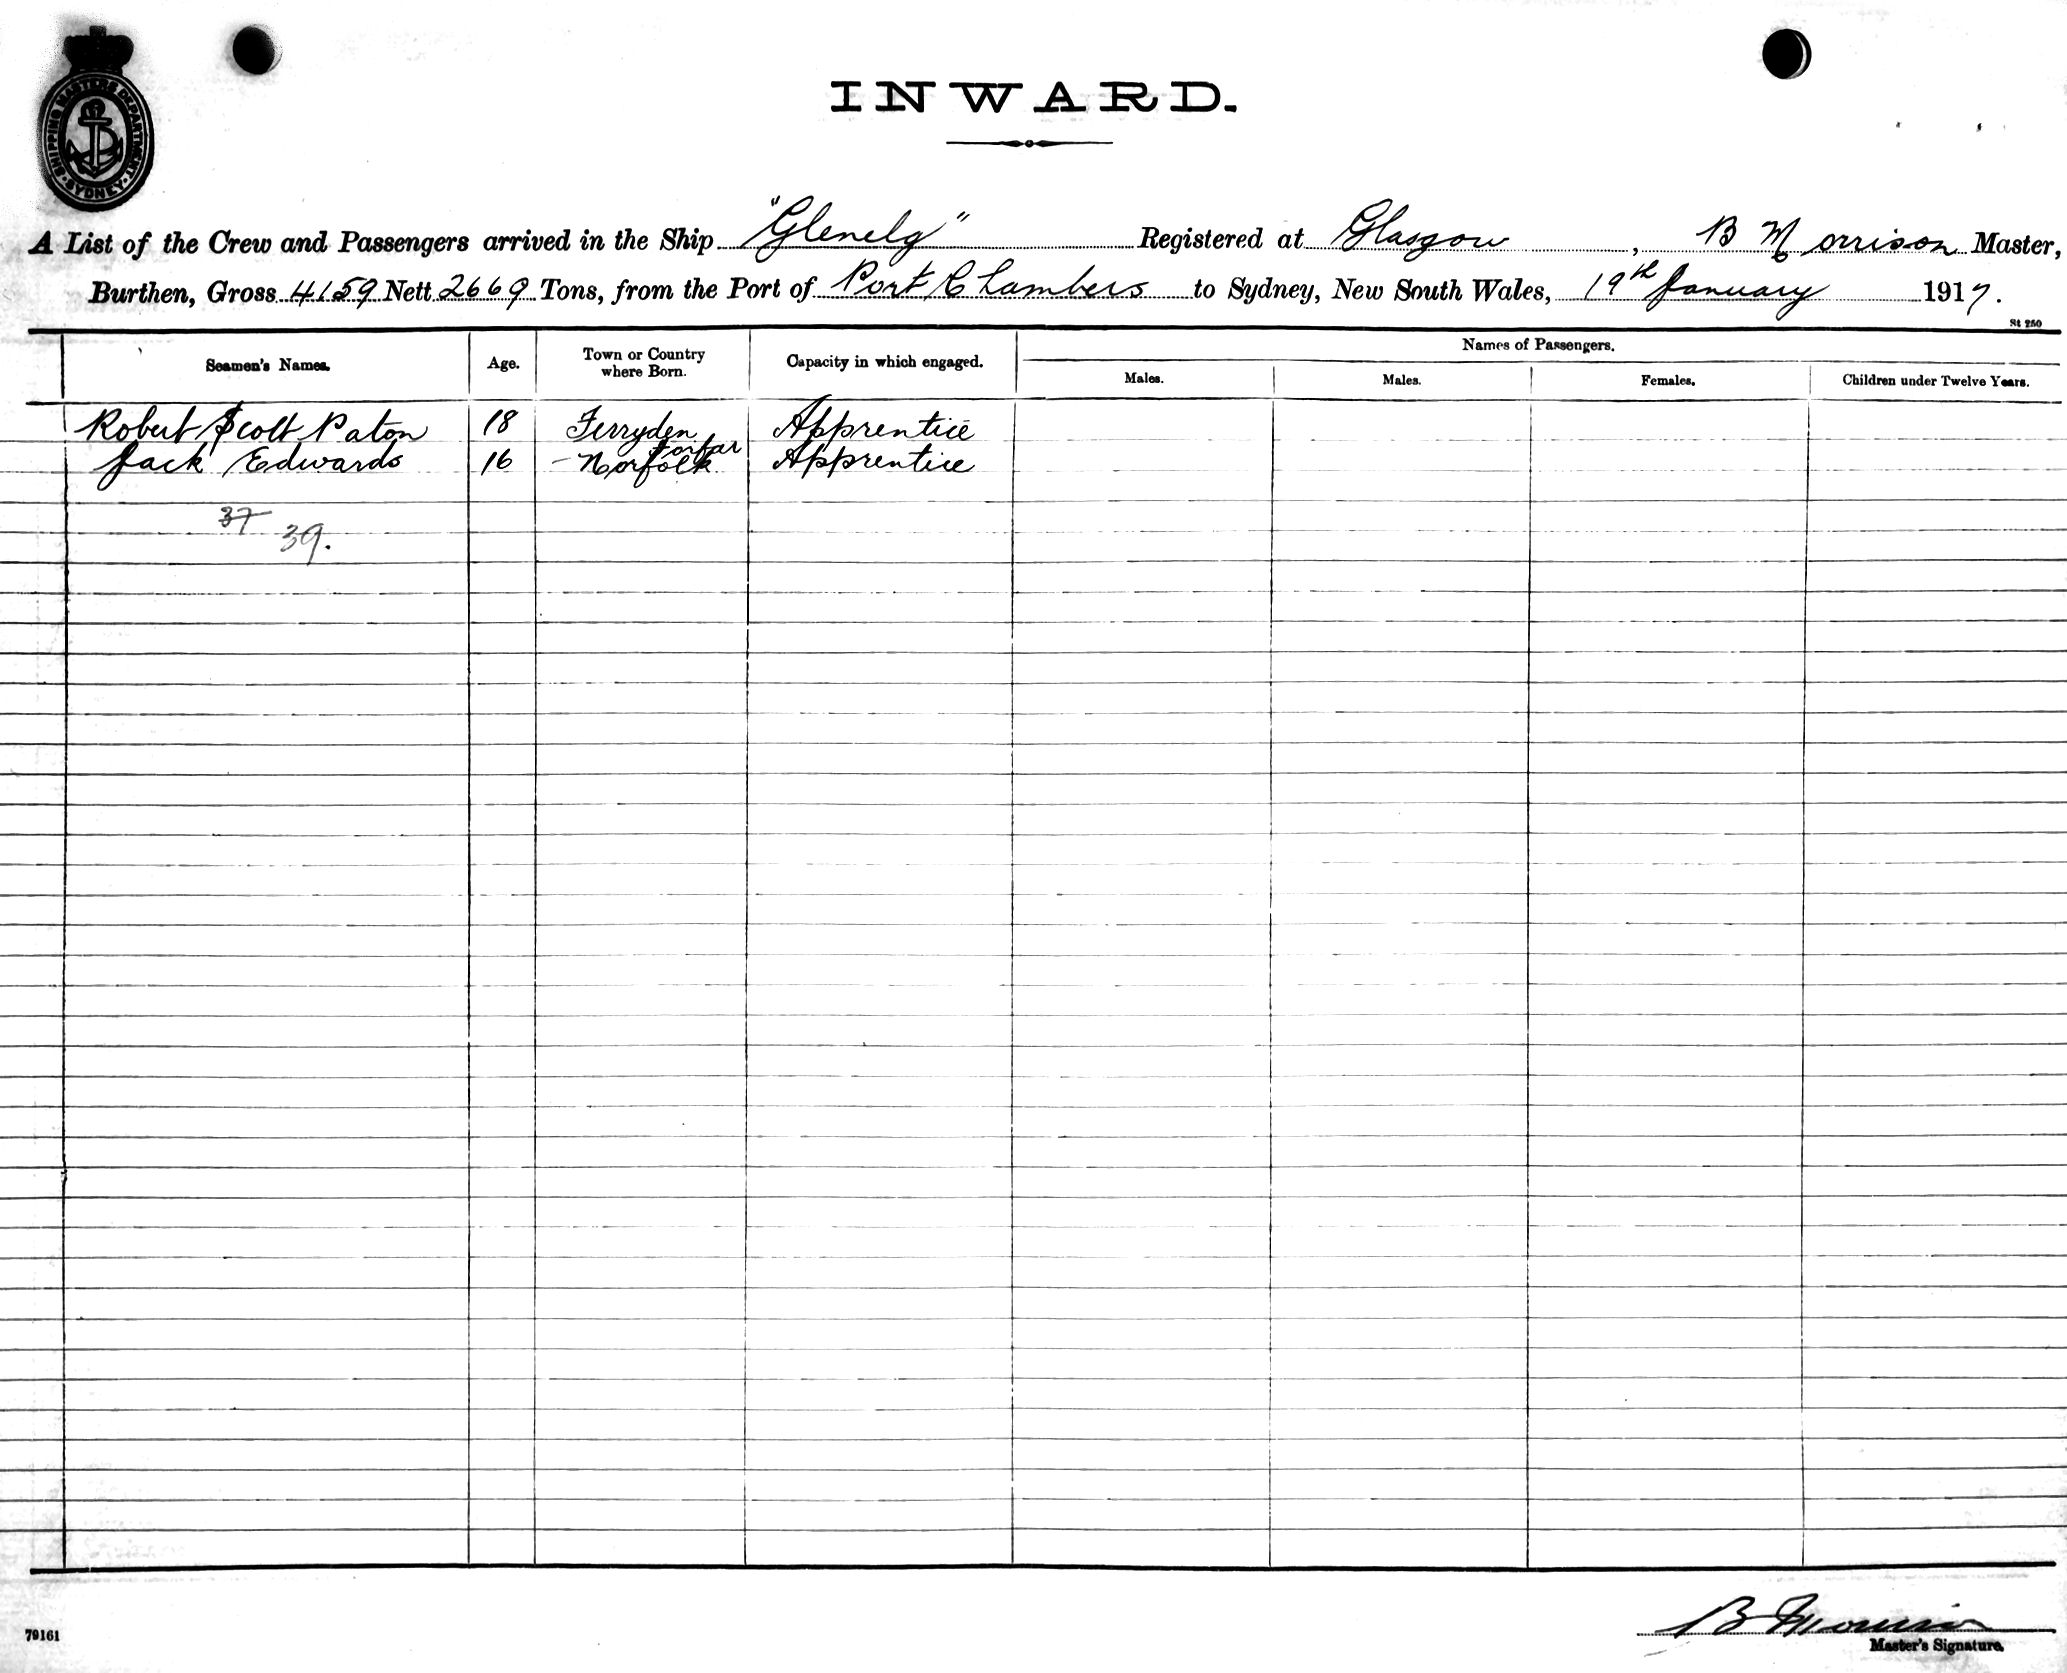 SHIPPING MASTERS DEPARTMENT
SYDNEY
INWARD.
A List of the Crew and Passengers arrived in the Ship "Glenelg" Registered at Glasgow, B Morrison Master,
Burthen, Gross 4159 Nett 2669 Tons, from the Port of Port Chambers to Sydney, New South Wales, 19th January 1917.
St 250
Seamen's Names. Age. Town or Country where Born. Capacity in which engaged. Names of Passengers.
Males. Males. Females. Children under Twelve Years.
Robert Scott Paton 18 Ferryden Forfar Apprentice
Jack Edwards 16 Norfolk Apprentice
37
39.
B Morrison
79161
Master's Signature.